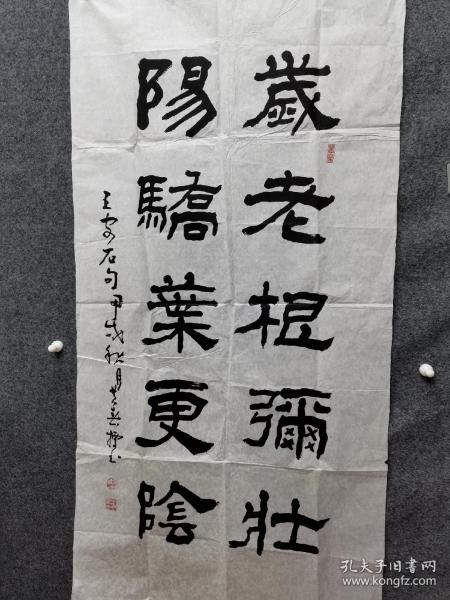 歲老根彌壯
陽驕葉更陰
王安石句甲戌秋月
孔夫子旧书网
www.kongfz.com